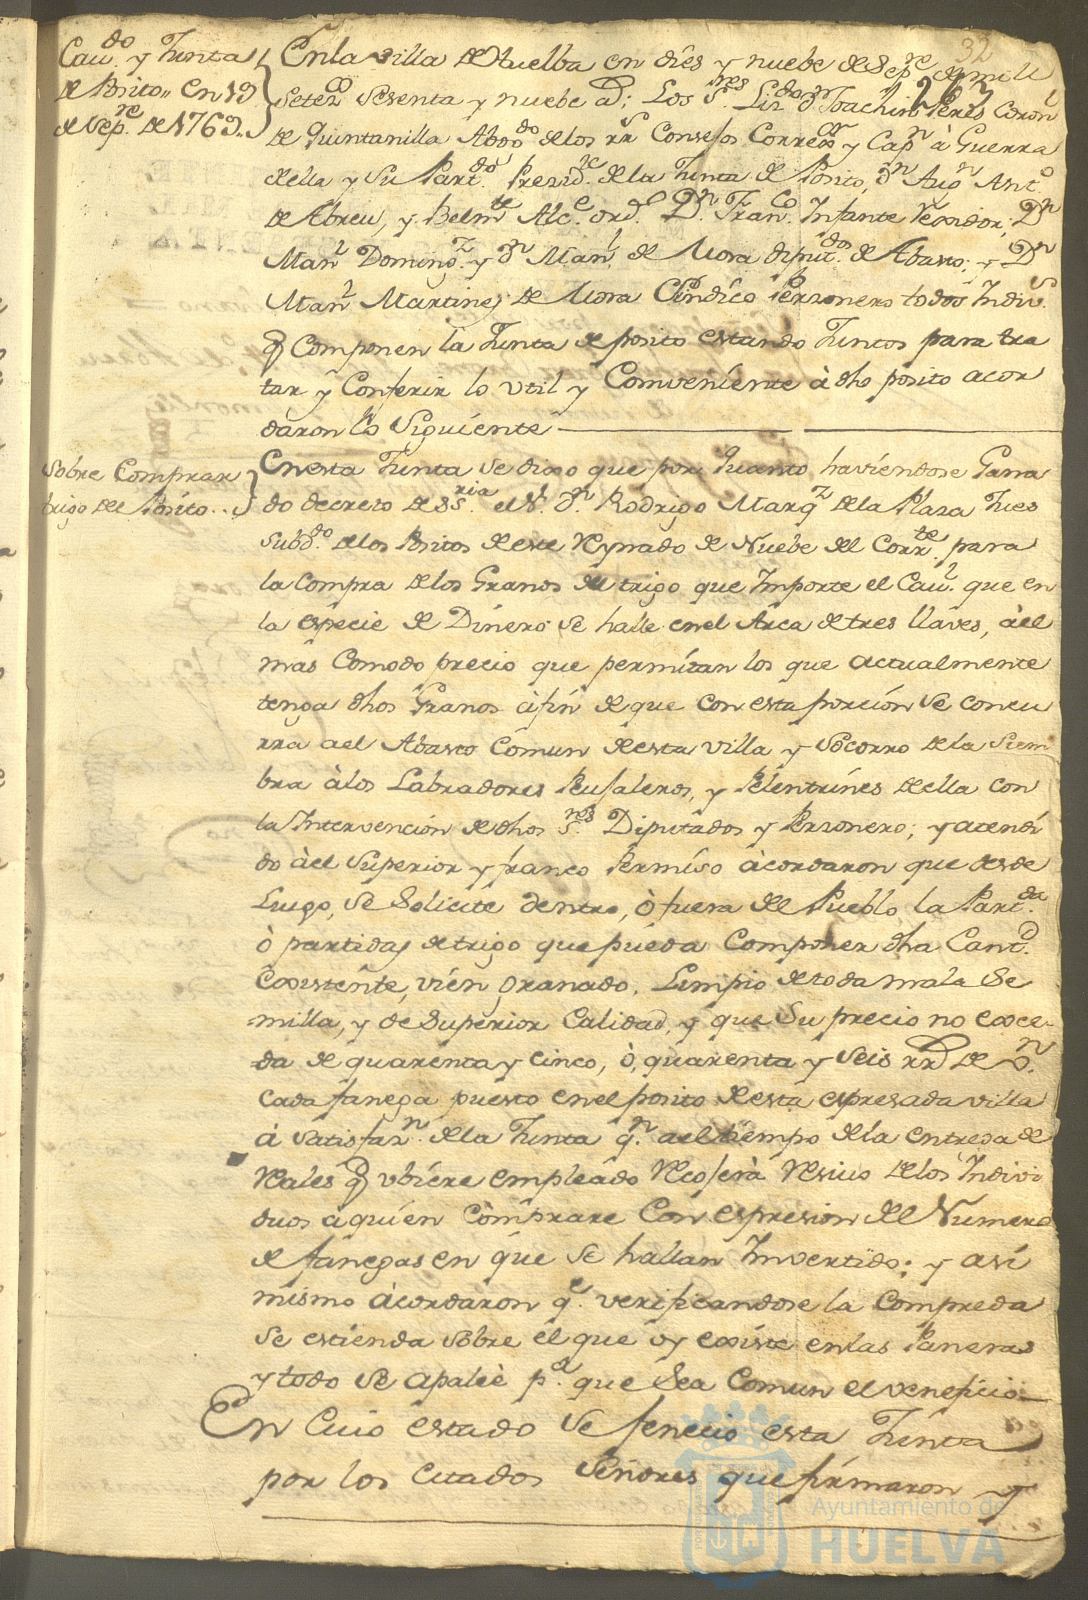 32
263
Cavdo. y Junta
de Posito,, en 19
de Sepre. de 1769.
En la villa de Huelba en dies y nuebe de Sepre. de mill
Setezs. Sesenta y nuebe as; Los Sres. Lizdo. Dn. Joachin Peres Coron
de Quintanilla Abogdo. de los rrs. Consejos Corregor. y Capn. à Guerra
della y Su Partdo. Presidte. de la Junta de Posito, Dn. Augn. Anto.
de Abreu, y Belmte. Alce. ordo. Dn. Franco. Infante Rexidor, Dn
Manl. Domingz. y Dn. Manl. de Mora diputdos. de Abasto; y Dn
Manl. Martines de Mora Cindico Perzonero todos Indivs.
q Componen la Junta de posito estando Juntos para tra
tar y Conferir lo util y Comveniente à dho posito acor
daron lo Siguiente
Sobre Comprar
trigo del Posito..
En esta Junta se dixo que por quanto haviendose Gana
do decreto de SSria. el Sr. Dn. Rodrigo Marqz. de la Plaza Jues
Subdo. de los Positos de este Reynado de Nuebe del Corrte. para
la compra de los Granos de trigo que Importe el Caul. que en
la especie de Dinero se halle en el Arca de tres llaves, àel
mas Comodo precio que permitan los que actualmente
tenga dhos Granos àfin de que con esta porcion se concu
rra ael Abasto Comun de esta villa y Socorro de la Siem
bra à los Labradores Peujaleros, y Pelentrines della con
la Intervencion de dhos Sres. Diputados y Perzonero; y atendi
do àel Superior y franco Permiso àcordaron que desde
Luego, se Solicite dentro, ò fuera del Pueblo la Partda.
ò partidas de trigo que pueda Componer dha Cantd.
Coxistente, vien granado, Limpio de toda mala Se
milla, y de Superior Calidad, y que Su precio no exce-
da de quarenta y cinco, ò, quarenta y seis rrs de vn.
cada fanega puesto en el posito de esta espresada villa
à satisfazn. de la Junta qn. ael tiempo de la entrega de
Reales q ubiere empleado Recojerà Resivo de los Indivi
duos a quien Comprare Con espresion del Numero
de fanegas en que se hallan Invertido; y asi
mismo àcordaron qe. verificandose la Compreda
se estienda sobre el que oy existe en las Paneras
y todo se apaleè pa. que Sea Comun el veneficio
En Cuio estado se fenecio esta Junta
por los citados Señores que firmaron y
Ayuntamiento de
HUELVA